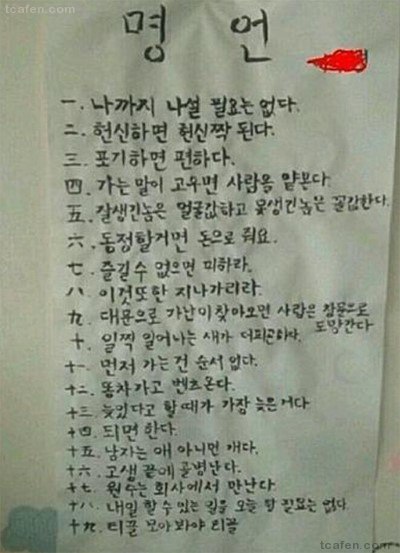 tcafen.com
명 언
一. 나까지 나설 필요는 없다.
二. 헌신하면 헌신짝 된다.
三. 포기하면 편하다.
四. 가는 말이 고우면 사람을 얕본다.
五. 잘생긴놈은 얼굴값하고 못생긴놈은 꼴값한다.
六. 동정할거면 돈으로 줘요.
七. 즐길수 없으면 피하라.
八. 이것또한 지나가리라.
九. 대문으로 가난이찾아오면 사람은 창문으로
도망간다
十. 일찍 일어나는 새가 더피곤하다.
十一. 먼저 가는건 순서 없다.
十二. 똥차가고 벤츠온다.
十三. 늦었다고 할때가 가장 늦은거다.
十四. 되면 한다.
十五. 남자는 애 아니면 개다.
十六. 고생 끝에 골병난다.
十七. 원수는 회사에서 만난다.
十八. 내일 할 수 있는 일을 오늘 할 필요는 없다.
十九. 티끌 모아봐야 티끌
tcafen.com